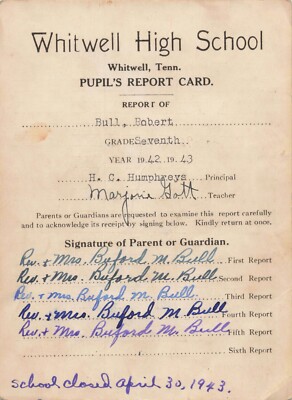 Whitwell High School
Whitwell, Tenn.
PUPIL'S REPORT CARD.
REPORT OF
Bull, Robert
GRADE Seventh
YEAR 1942 1943
H. C. Humphreys Principal
Marjorie Gott Teacher
Parents or Guardians are requested to examine this report carefully
and to acknowledge its receipt by signing below. Kindly return at once.
Signature of Parent or Guardian.
Rev. + Mrs. Buford M. Bull First Report
Rev. + Mrs. Buford M. Bull Second Report
Rev. + Mrs. Buford M. Bull Third Report
Rev. + Mrs. Buford M. Bull Fourth Report
Rev. + Mrs. Buford M. Bull Fifth Report
Sixth Report
School closed April 30, 1943.